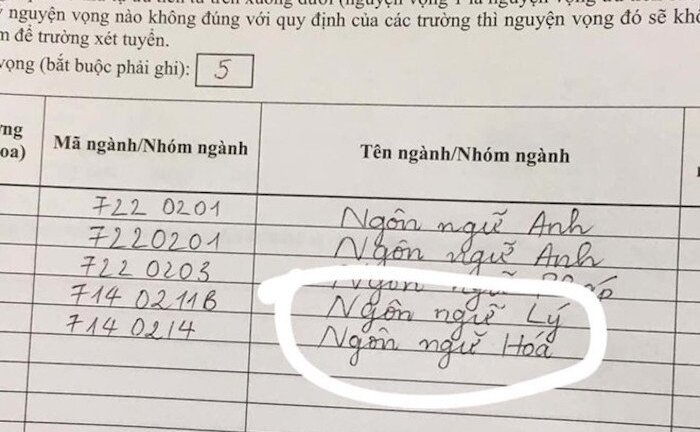 nguyện vọng nào không đúng với quy định của các trường thì nguyện vọng đó sẽ
để trường xét tuyển.
vọng (bắt buộc phải ghi): 5
Mã ngành/Nhóm ngành Tên ngành/Nhóm ngành
722 0201 Ngôn ngữ Anh
7220201 Ngôn ngữ Anh
722 0203 Ngôn ngữ
714 0211B Ngôn ngữ Lý
714 0214 Ngôn ngữ Hóa